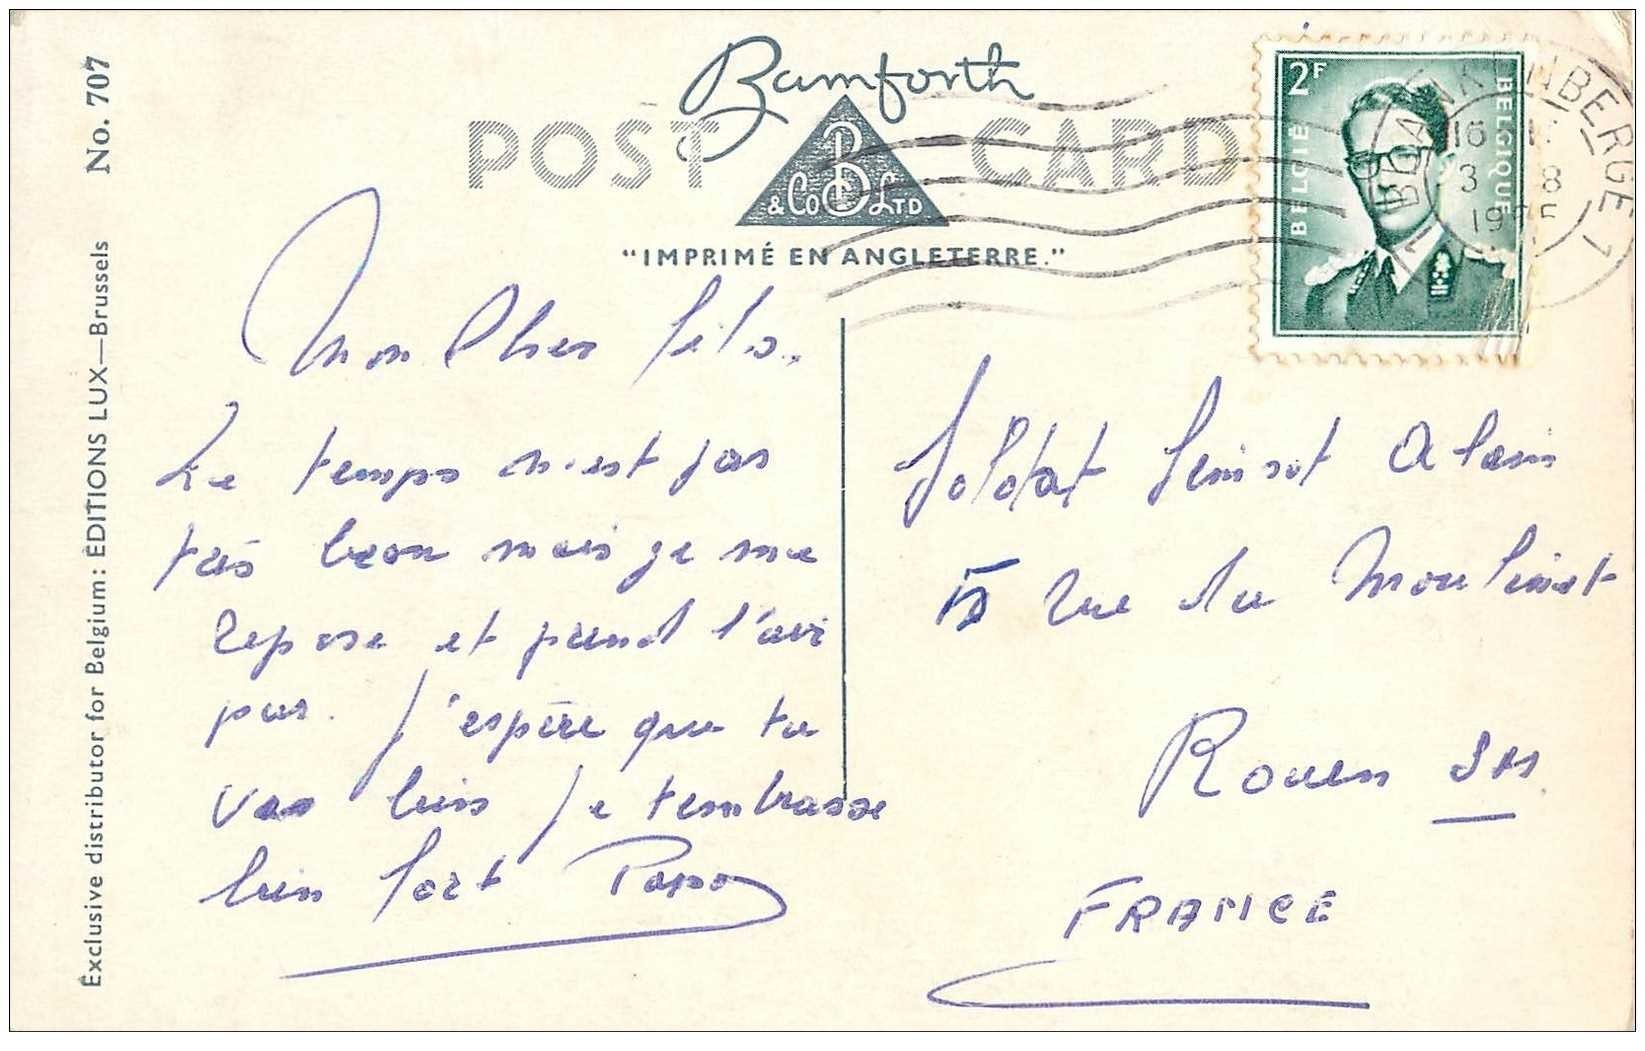 Bamforth
POST CARD
B
& Co LTD
"IMPRIMÉ EN ANGLETERRE."
2F
BELGIË
BELGIQUE
BLANKENBERGE 1
16
3 8
No. 707
Exclusive distributor for Belgium: ÉDITIONS LUX—Brussels
Mon Cher fils.
Le temps n'est pas
très beau mais je me
repose et prend l'air
pur. J'espère que tu
vas bien Je t'embrasse
bien fort Papa
Soldat Alain
rue du Moulinet
Rouen SM
FRANCE